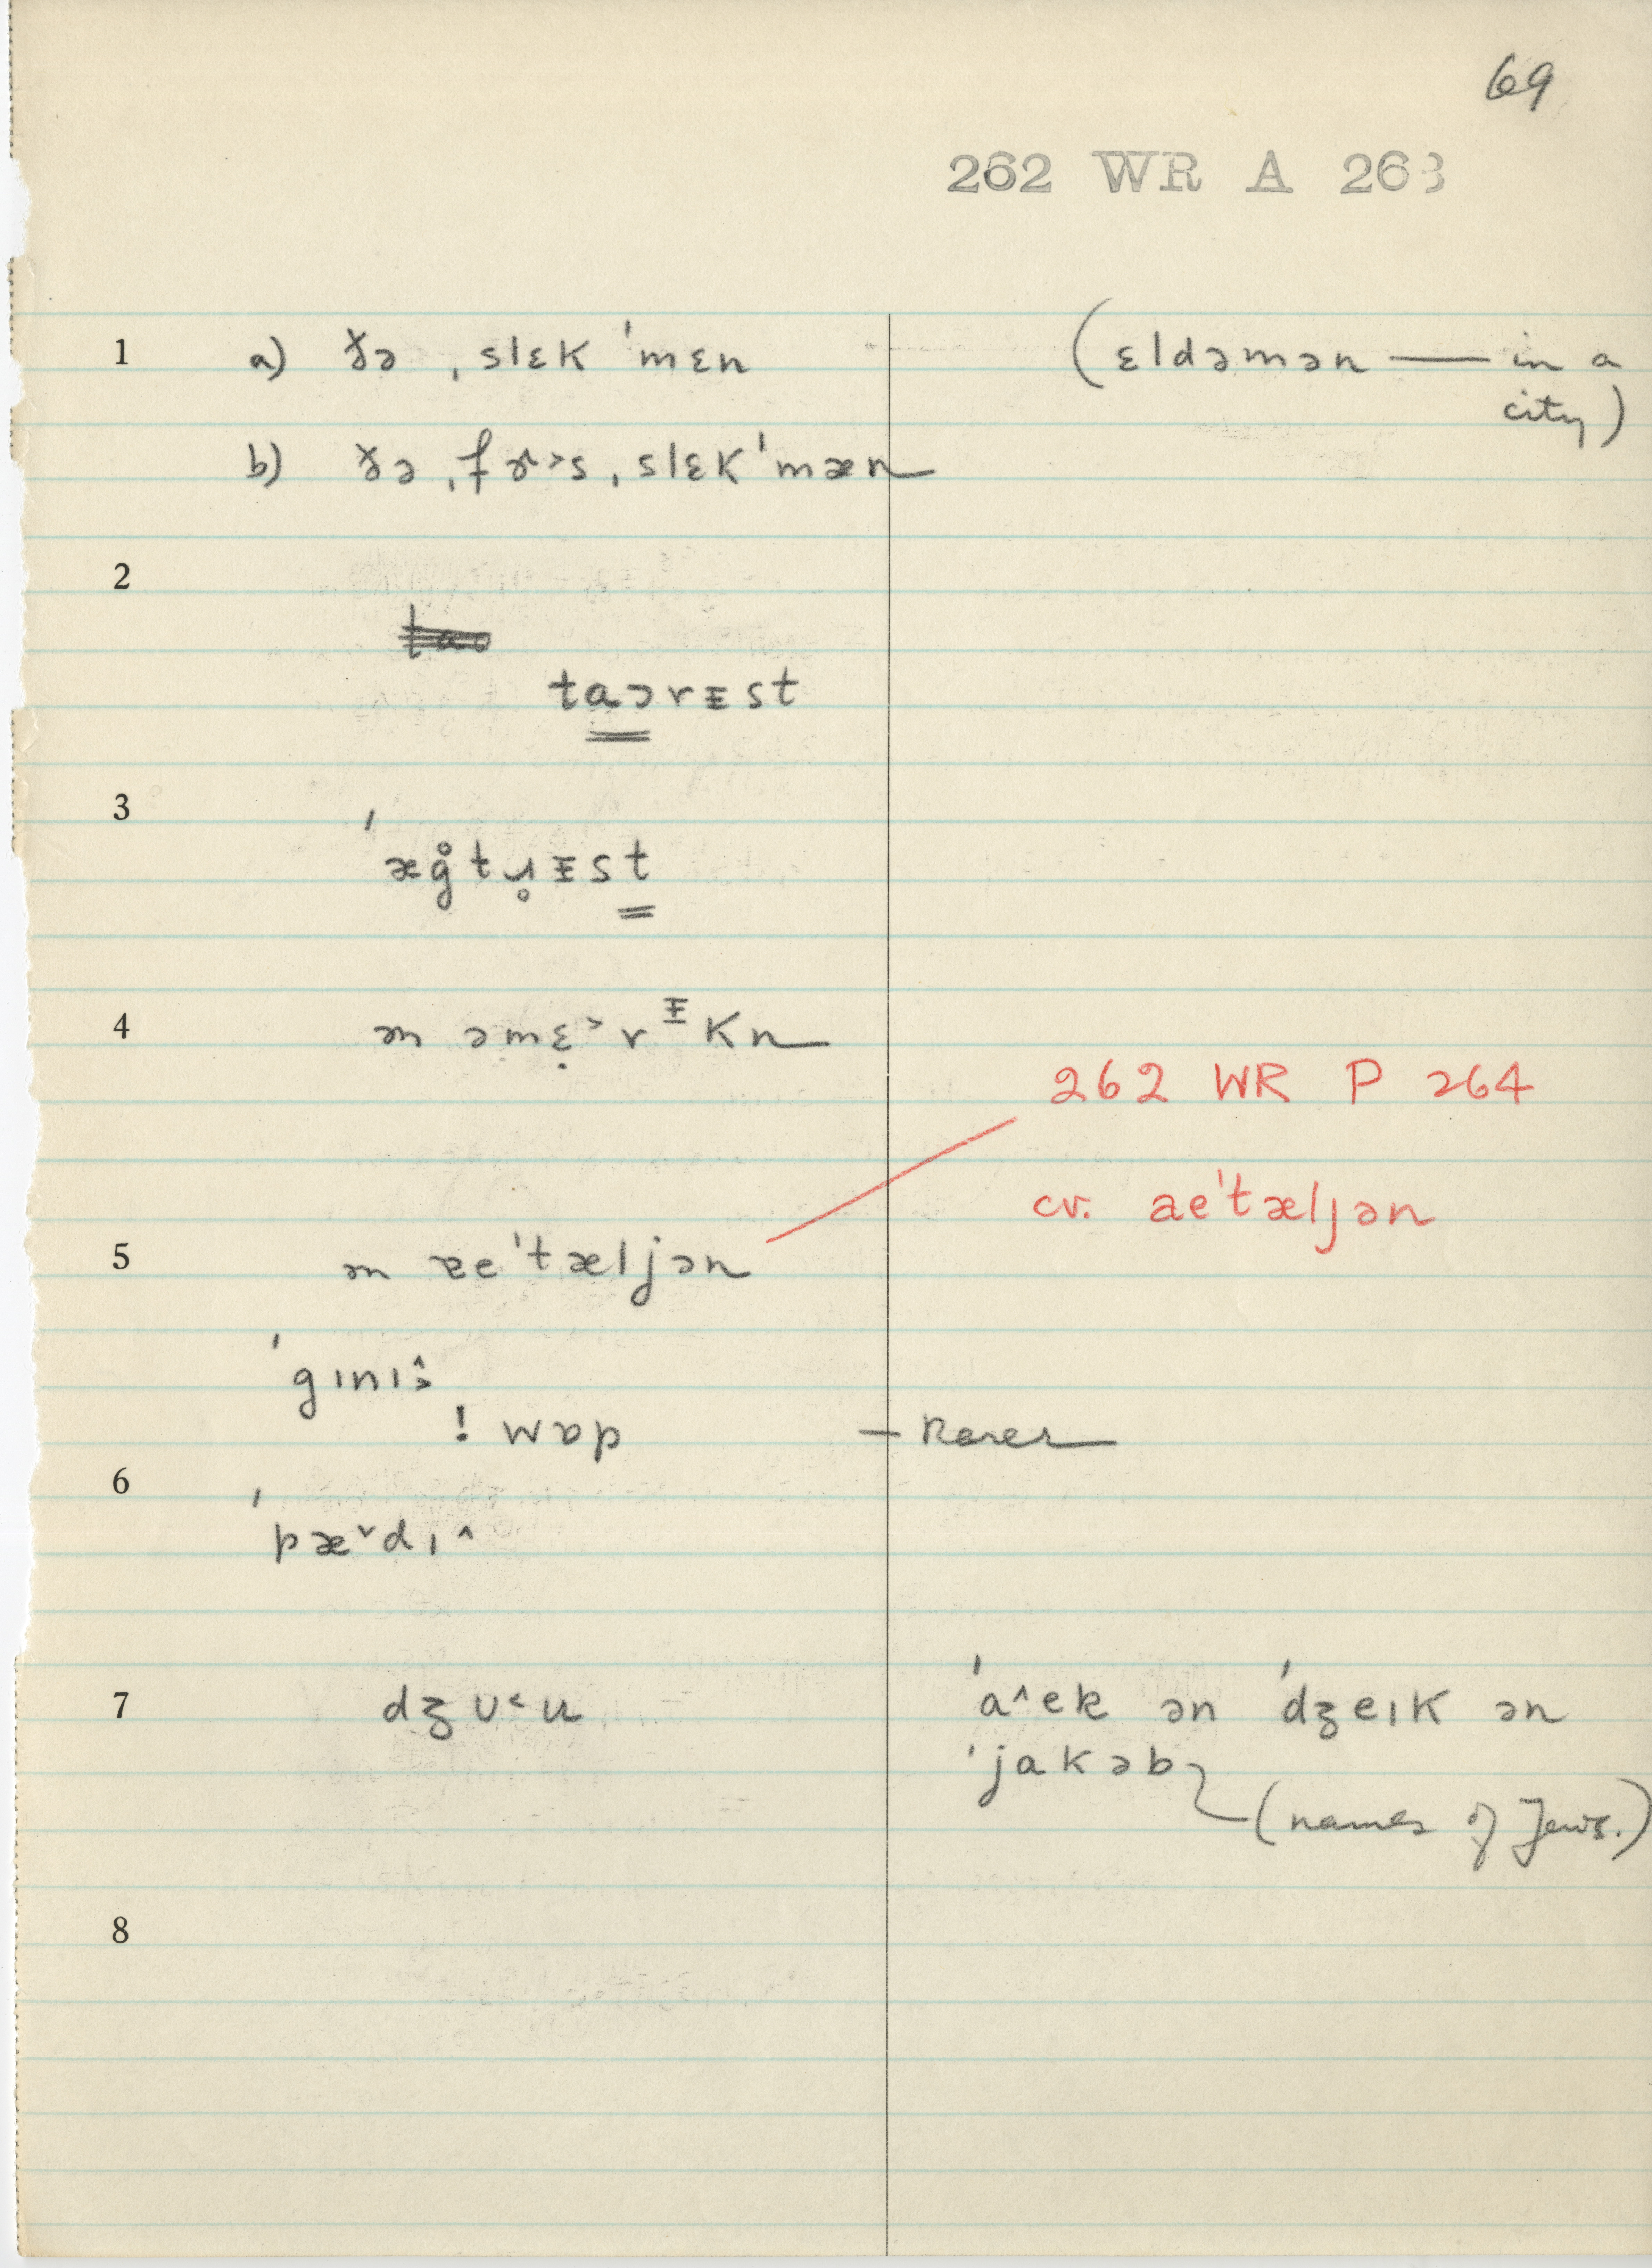 69
262 WR A 263
1 a) ðə ˌslɛk ˈmɛn (ɛldəmən — in a
city)
b) ðə ˌfɚ˃s ˌslɛkˈmæn
2
taɔrᵻst
3
ˈæg̊tɹ̥ᵻst
4 ən əmɛ̣˃rᵻkn
262 WR P 264
cv. aeˈtæljən
5 ən ɐeˈtæljən
ˈgɪnɪ
! wɒp — Rarer
6
ˈpæ˅dɪ˄
7 dʒʊ˂u ˈa˄ek ən ˈdʒeɪk ən
ˈjakəb
(names of Jews.)
8